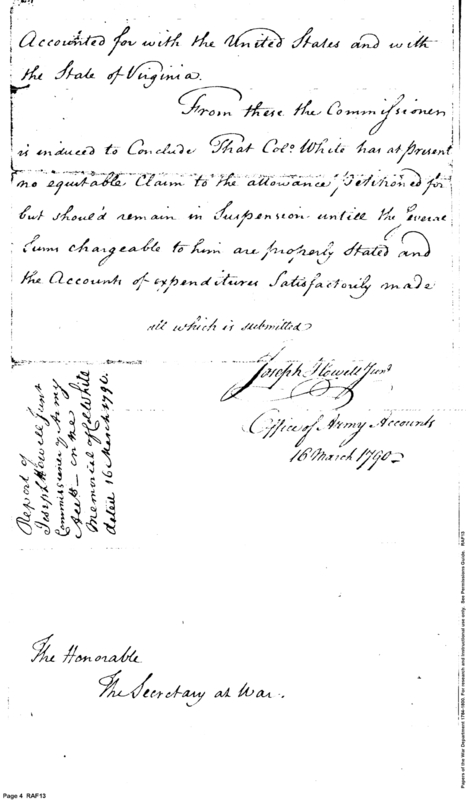 Accounted for with the United States and with
the State of Virginia.
From these the Commissioner
is induced to Conclude That Colo. White has at present
no equitable Claim to the allowance Petitioned for
but should remain in Suspension untill the Several
Sums chargeable to him are properly Stated and
the Accounts of expenditures Satisfactorily made
all which is submitted
Joseph Howell Junr
Office of Army Accounts
16 March 1790
Report of
Joseph Howell Junr
Commissioner of Army
Accts — in the
Memorial of Col White
dated 16 March 1790.
The Honorable
The Secretary at War.
Page 4 RAF13
Papers of the War Department 1784-1800. For research and instructional use only. See Permissions Guide. RAF13